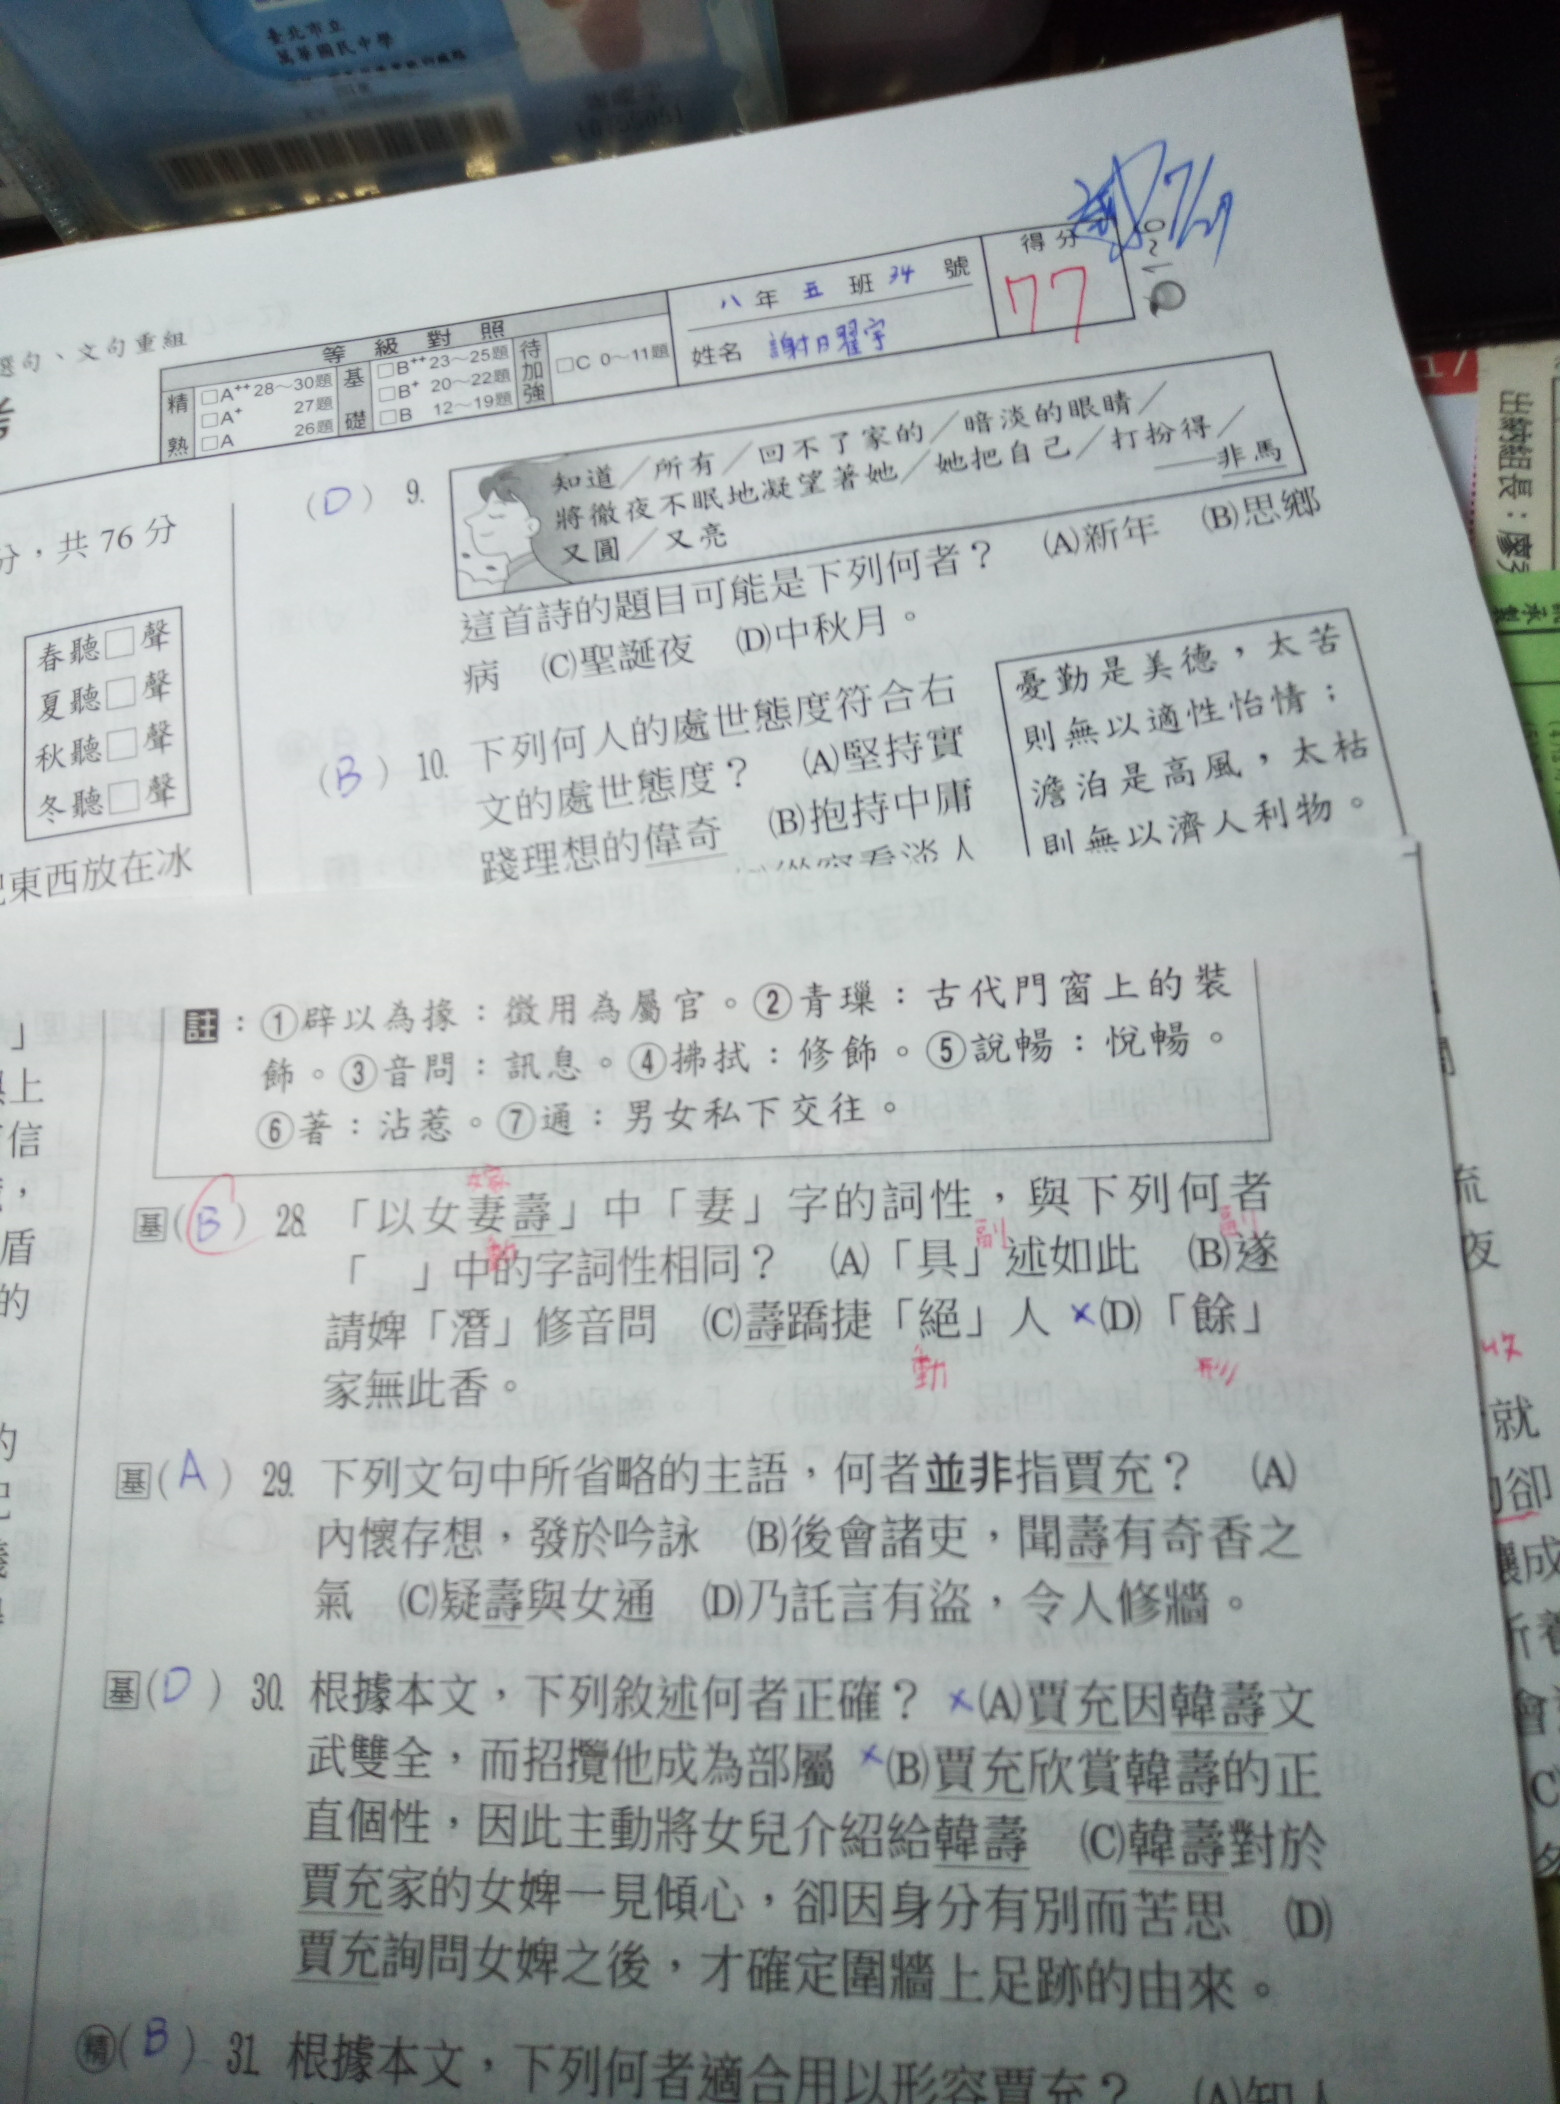 臺北市立
萬華國民中學
選句、文句重組
等級對照
精熟
□A++ 28～30題
□A+ 27題
□A 26題
基礎
□B++ 23～25題
□B+ 20～22題
□B 12～19題
待加強
□C 0～11題
八年五班34號
姓名 謝曜宇
得分
77
分，共76分
春聽□聲
夏聽□聲
秋聽□聲
冬聽□聲
東西放在冰
(D) 9.
知道／所有／回不了家的／暗淡的眼睛／
將徹夜不眠地凝望著她／她把自己／打扮得／
又圓／又亮 ——非馬
這首詩的題目可能是下列何者？ (A)新年 (B)思鄉
病 (C)聖誕夜 (D)中秋月。
(B) 10. 下列何人的處世態度符合右
文的處世態度？ (A)堅持實
踐理想的偉奇 (B)抱持中庸
憂勤是美德，太苦
則無以適性怡情；
澹泊是高風，太枯
則無以濟人利物。
註：①辟以為掾：徵用為屬官。②青璅：古代門窗上的裝
飾。③音問：訊息。④拂拭：修飾。⑤說暢：悅暢。
⑥著：沾惹。⑦通：男女私下交往。
嫁
基(B) 28. 「以女妻壽」中「妻」字的詞性，與下列何者
動 副 副
「　」中的字詞性相同？ (A)「具」述如此 (B)遂
請婢「潛」修音問 (C)壽蹻捷「絕」人 ×(D)「餘」
動 形
家無此香。
基(A) 29. 下列文句中所省略的主語，何者並非指賈充？ (A)
內懷存想，發於吟詠 (B)後會諸吏，聞壽有奇香之
氣 (C)疑壽與女通 (D)乃託言有盜，令人修牆。
基(D) 30. 根據本文，下列敘述何者正確？ ×(A)賈充因韓壽文
武雙全，而招攬他成為部屬 ×(B)賈充欣賞韓壽的正
直個性，因此主動將女兒介紹給韓壽 (C)韓壽對於
賈充家的女婢一見傾心，卻因身分有別而苦思 (D)
賈充詢問女婢之後，才確定圍牆上足跡的由來。
精(B) 31. 根據本文，下列何者適合用以形容賈充？ (A)知人
出納組長：廖